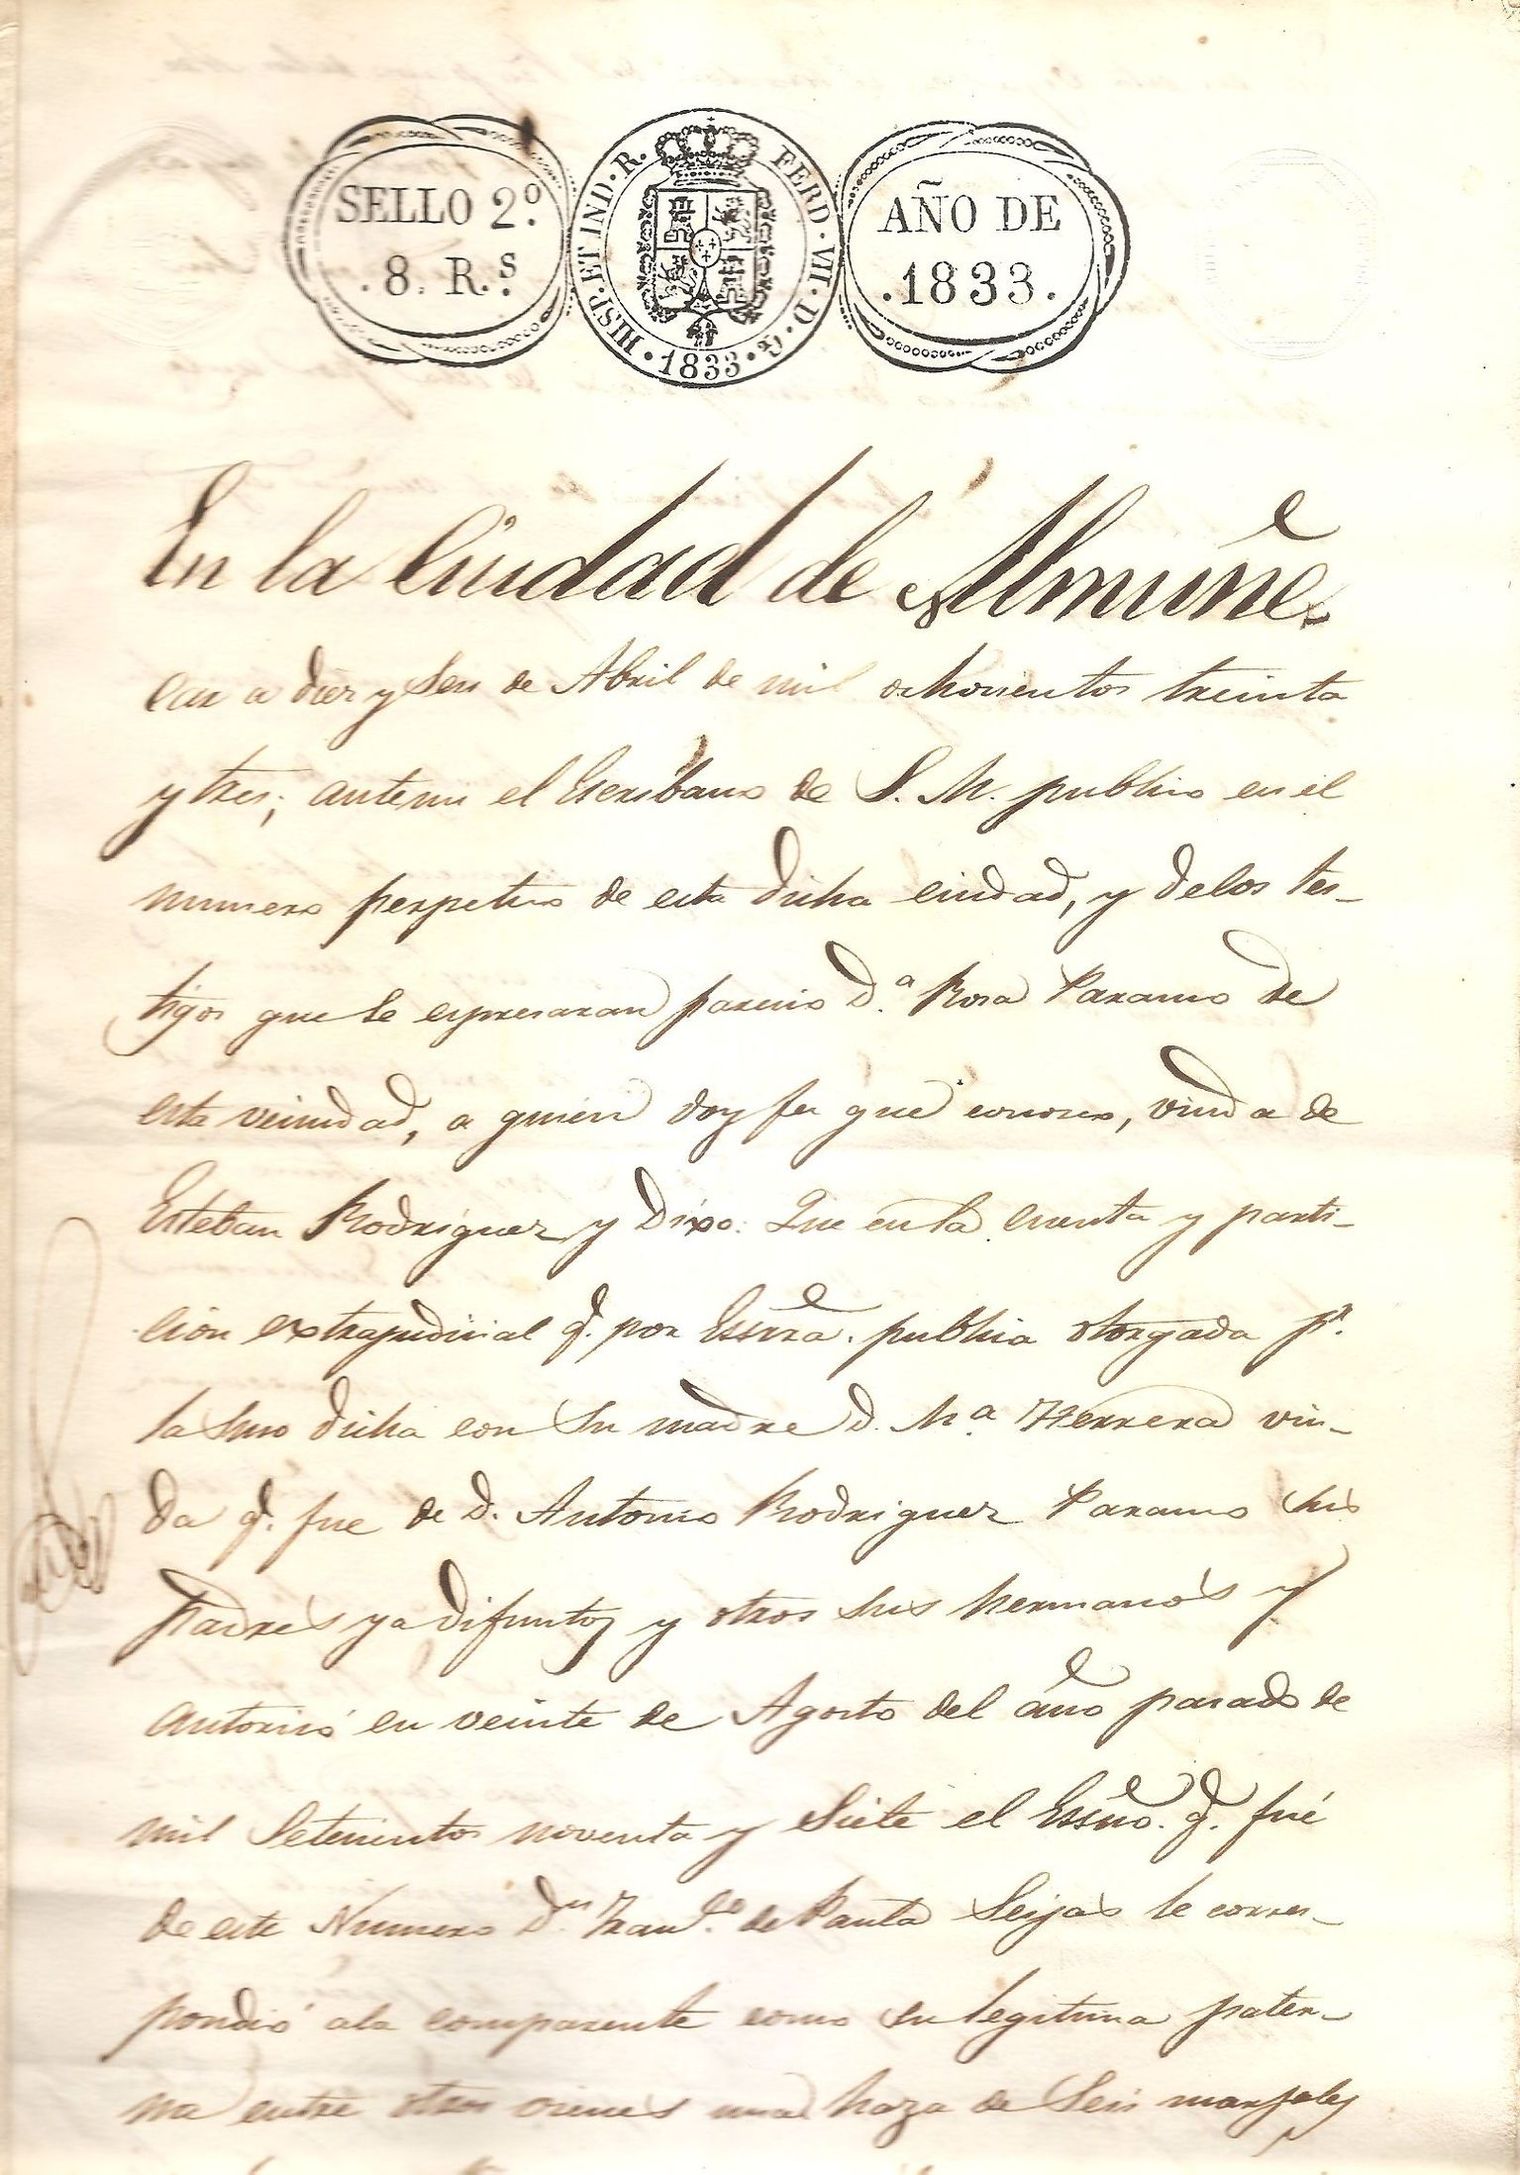 SELLO 2º.
.8. R.s
HISP. ET IND. R. FERD. VII. D. G. 1833
AÑO DE
.1833.
En la Ciudad de Almuñe-
car a diez y seis de Abril de mil ochocientos treinta
y tres; antemi el Escribano de S. M. publico en el
numero perpetuo de esta dicha ciudad, y delos tes-
tigos que se espresaran parecio D.ª Rosa Paramo de
esta vecindad, a quien doy fee que conozco, viuda de
Esteban Rodriguez y Dixo: Que en la cuenta y parti-
cion extrajudicial q. por Esscra. publica otorgada p.r
la suso dicha con su madre D. M.ª Herrera viu-
da q. fue de D. Antonio Rodriguez Paramo sus
Padres ya difuntos y otros sus hermanos y
autorizó en veinte de Agosto del año pasado de
mil setecientos noventa y siete el Essno. q. fué
de este Numero D.n Fran.co de Paula Seijas le corres-
pondió ala comparente como su legitima pater-
na entre otros vienes una haza de seis marjales